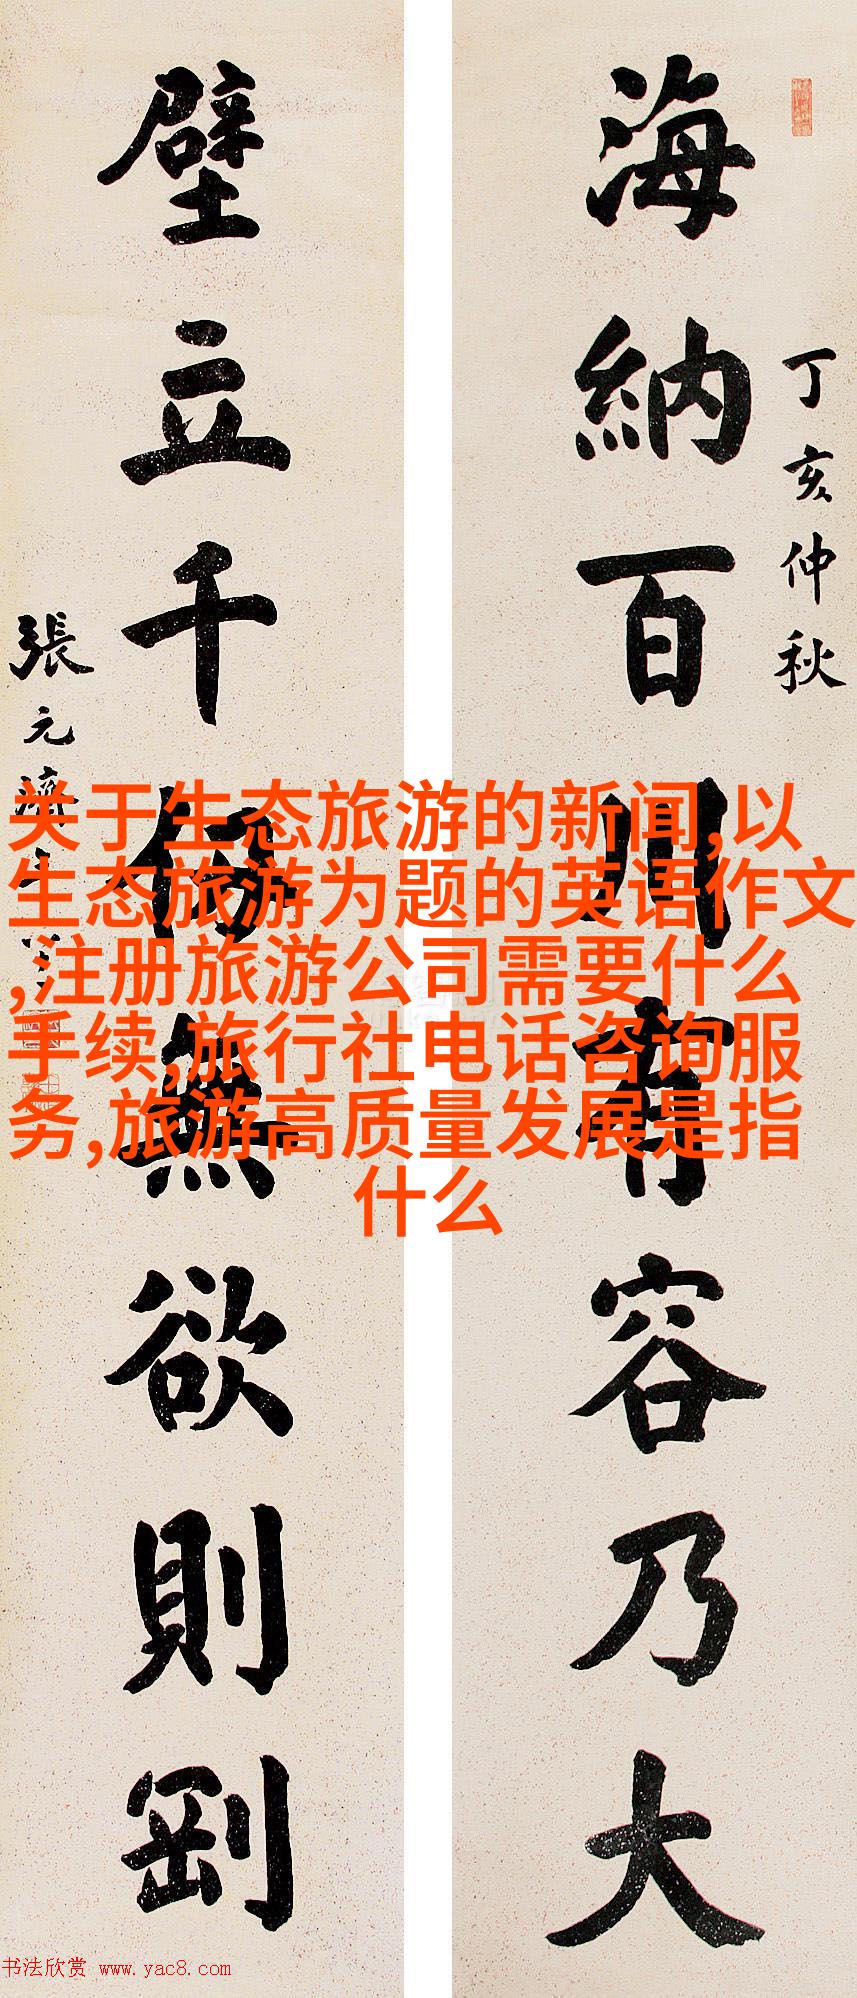 丁亥仲秋
海納百川有容乃大
壁立千仞無欲則剛
張元濟
关于生态旅游的新闻,以
生态旅游为题的英语作文
,注册旅游公司需要什么
手续,旅行社电话咨询服
务,旅游高质量发展是指
什么
书法欣赏 www.yac8.com